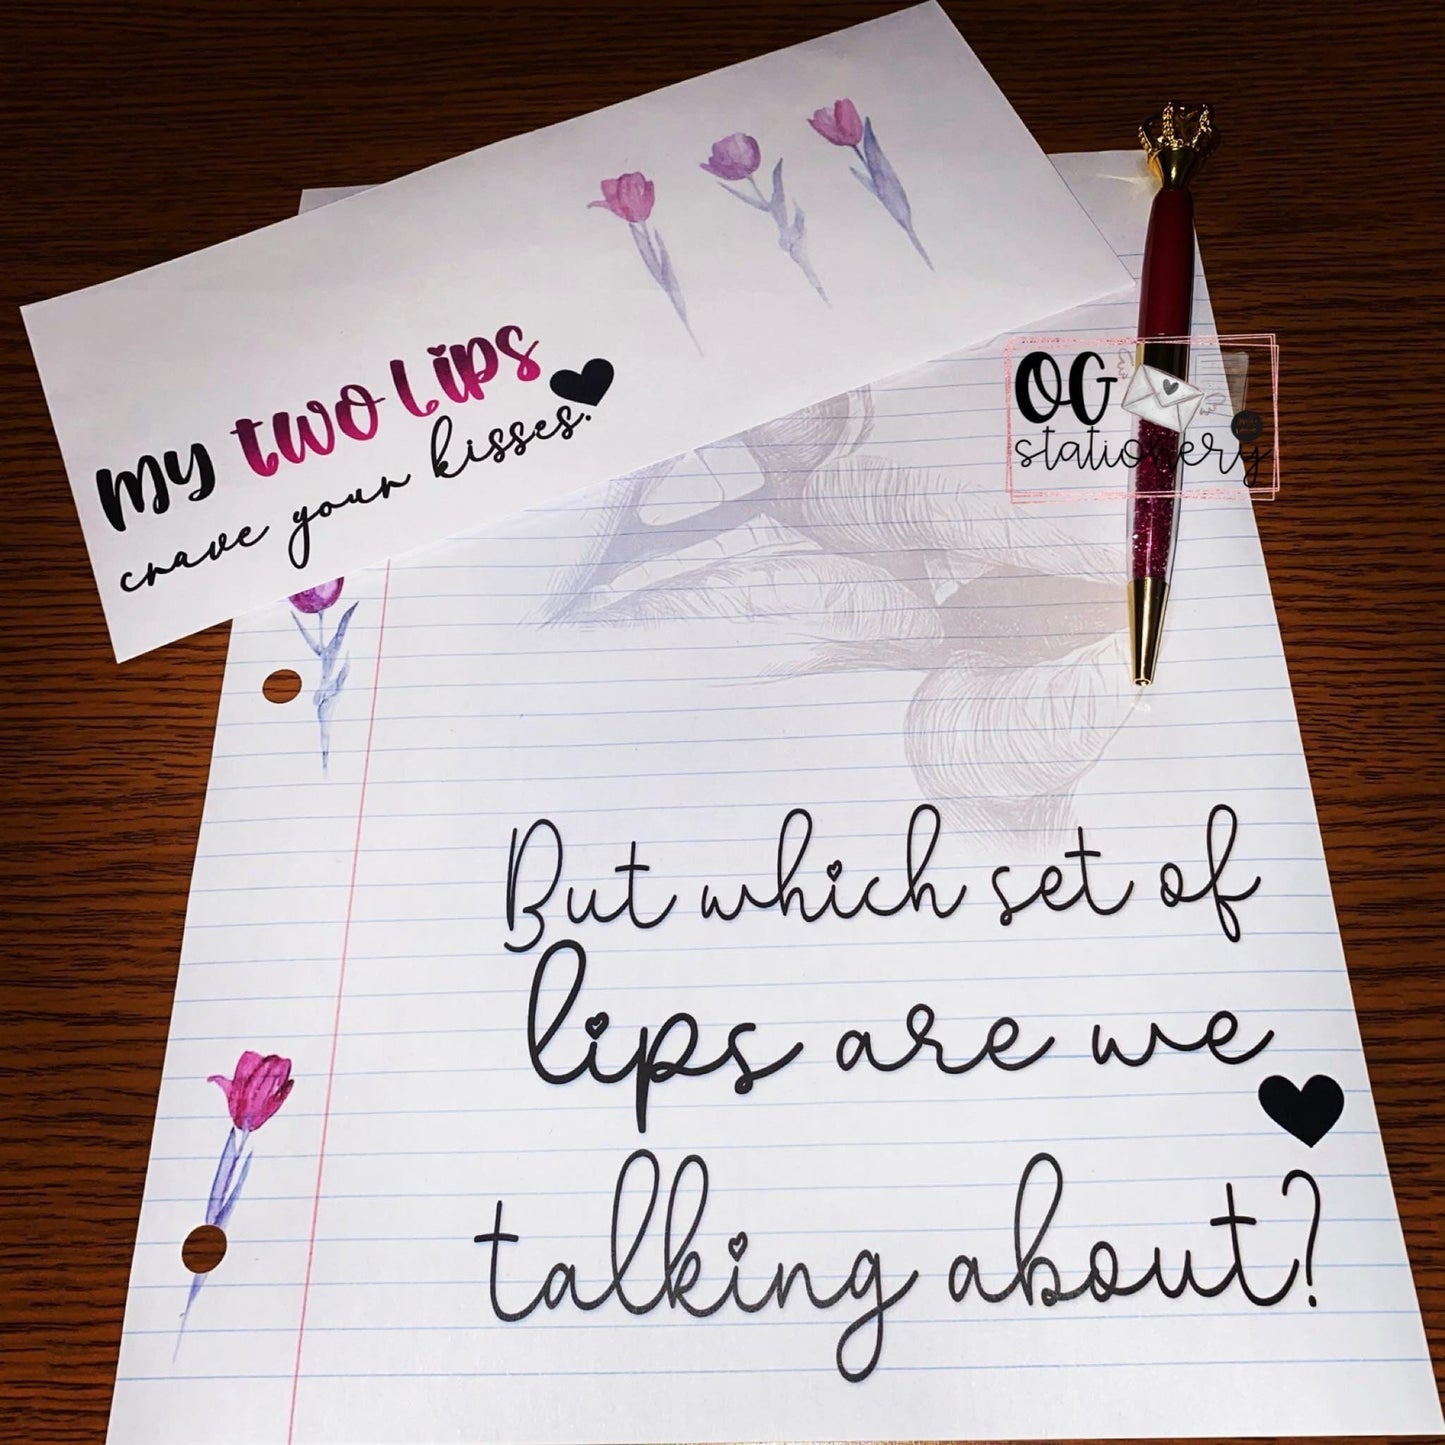 my two lips
crave your kisses.
OG
stationery
But which set of
lips are we
talking about?